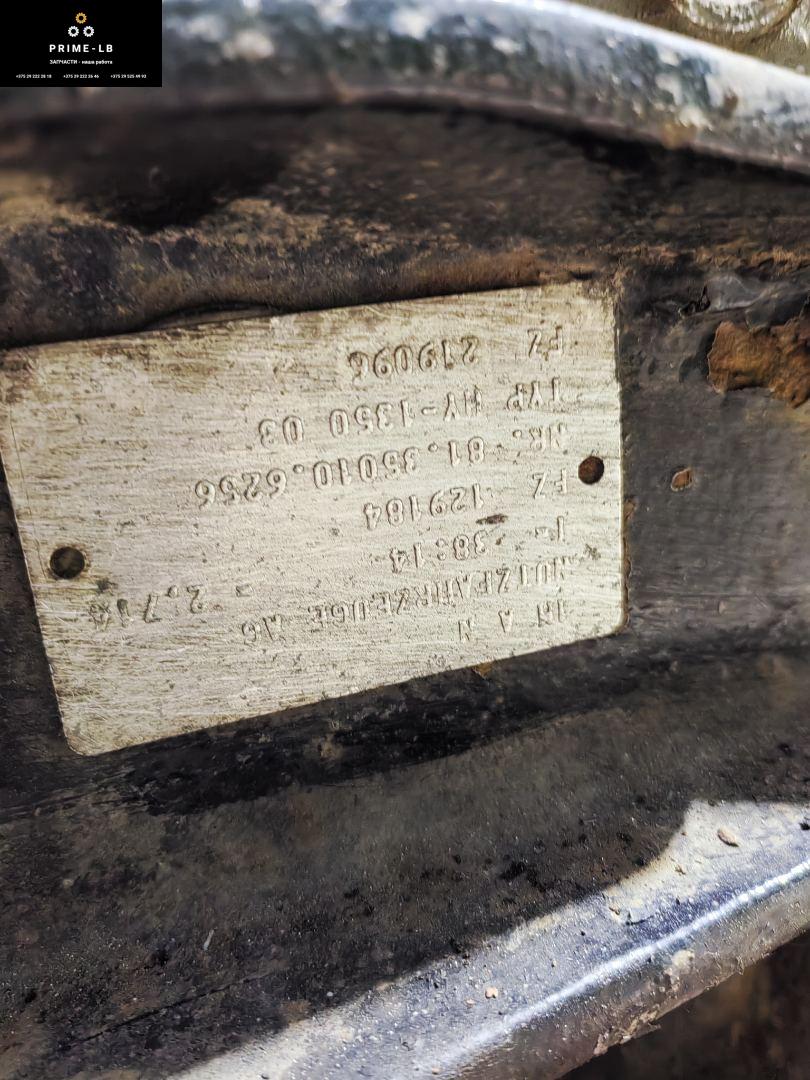 PRIME-LB
ЗАПЧАСТИ - наша работа
+375 29 222 28 18 +375 29 222 26 46 +375 29 525 49 93
M A N
NUTZFAHRZEUGE AG
I= 38:14 = 2.714
FZ 129184
NR. 81.35010.6256
TYP HY-1350 03
FZ 219096